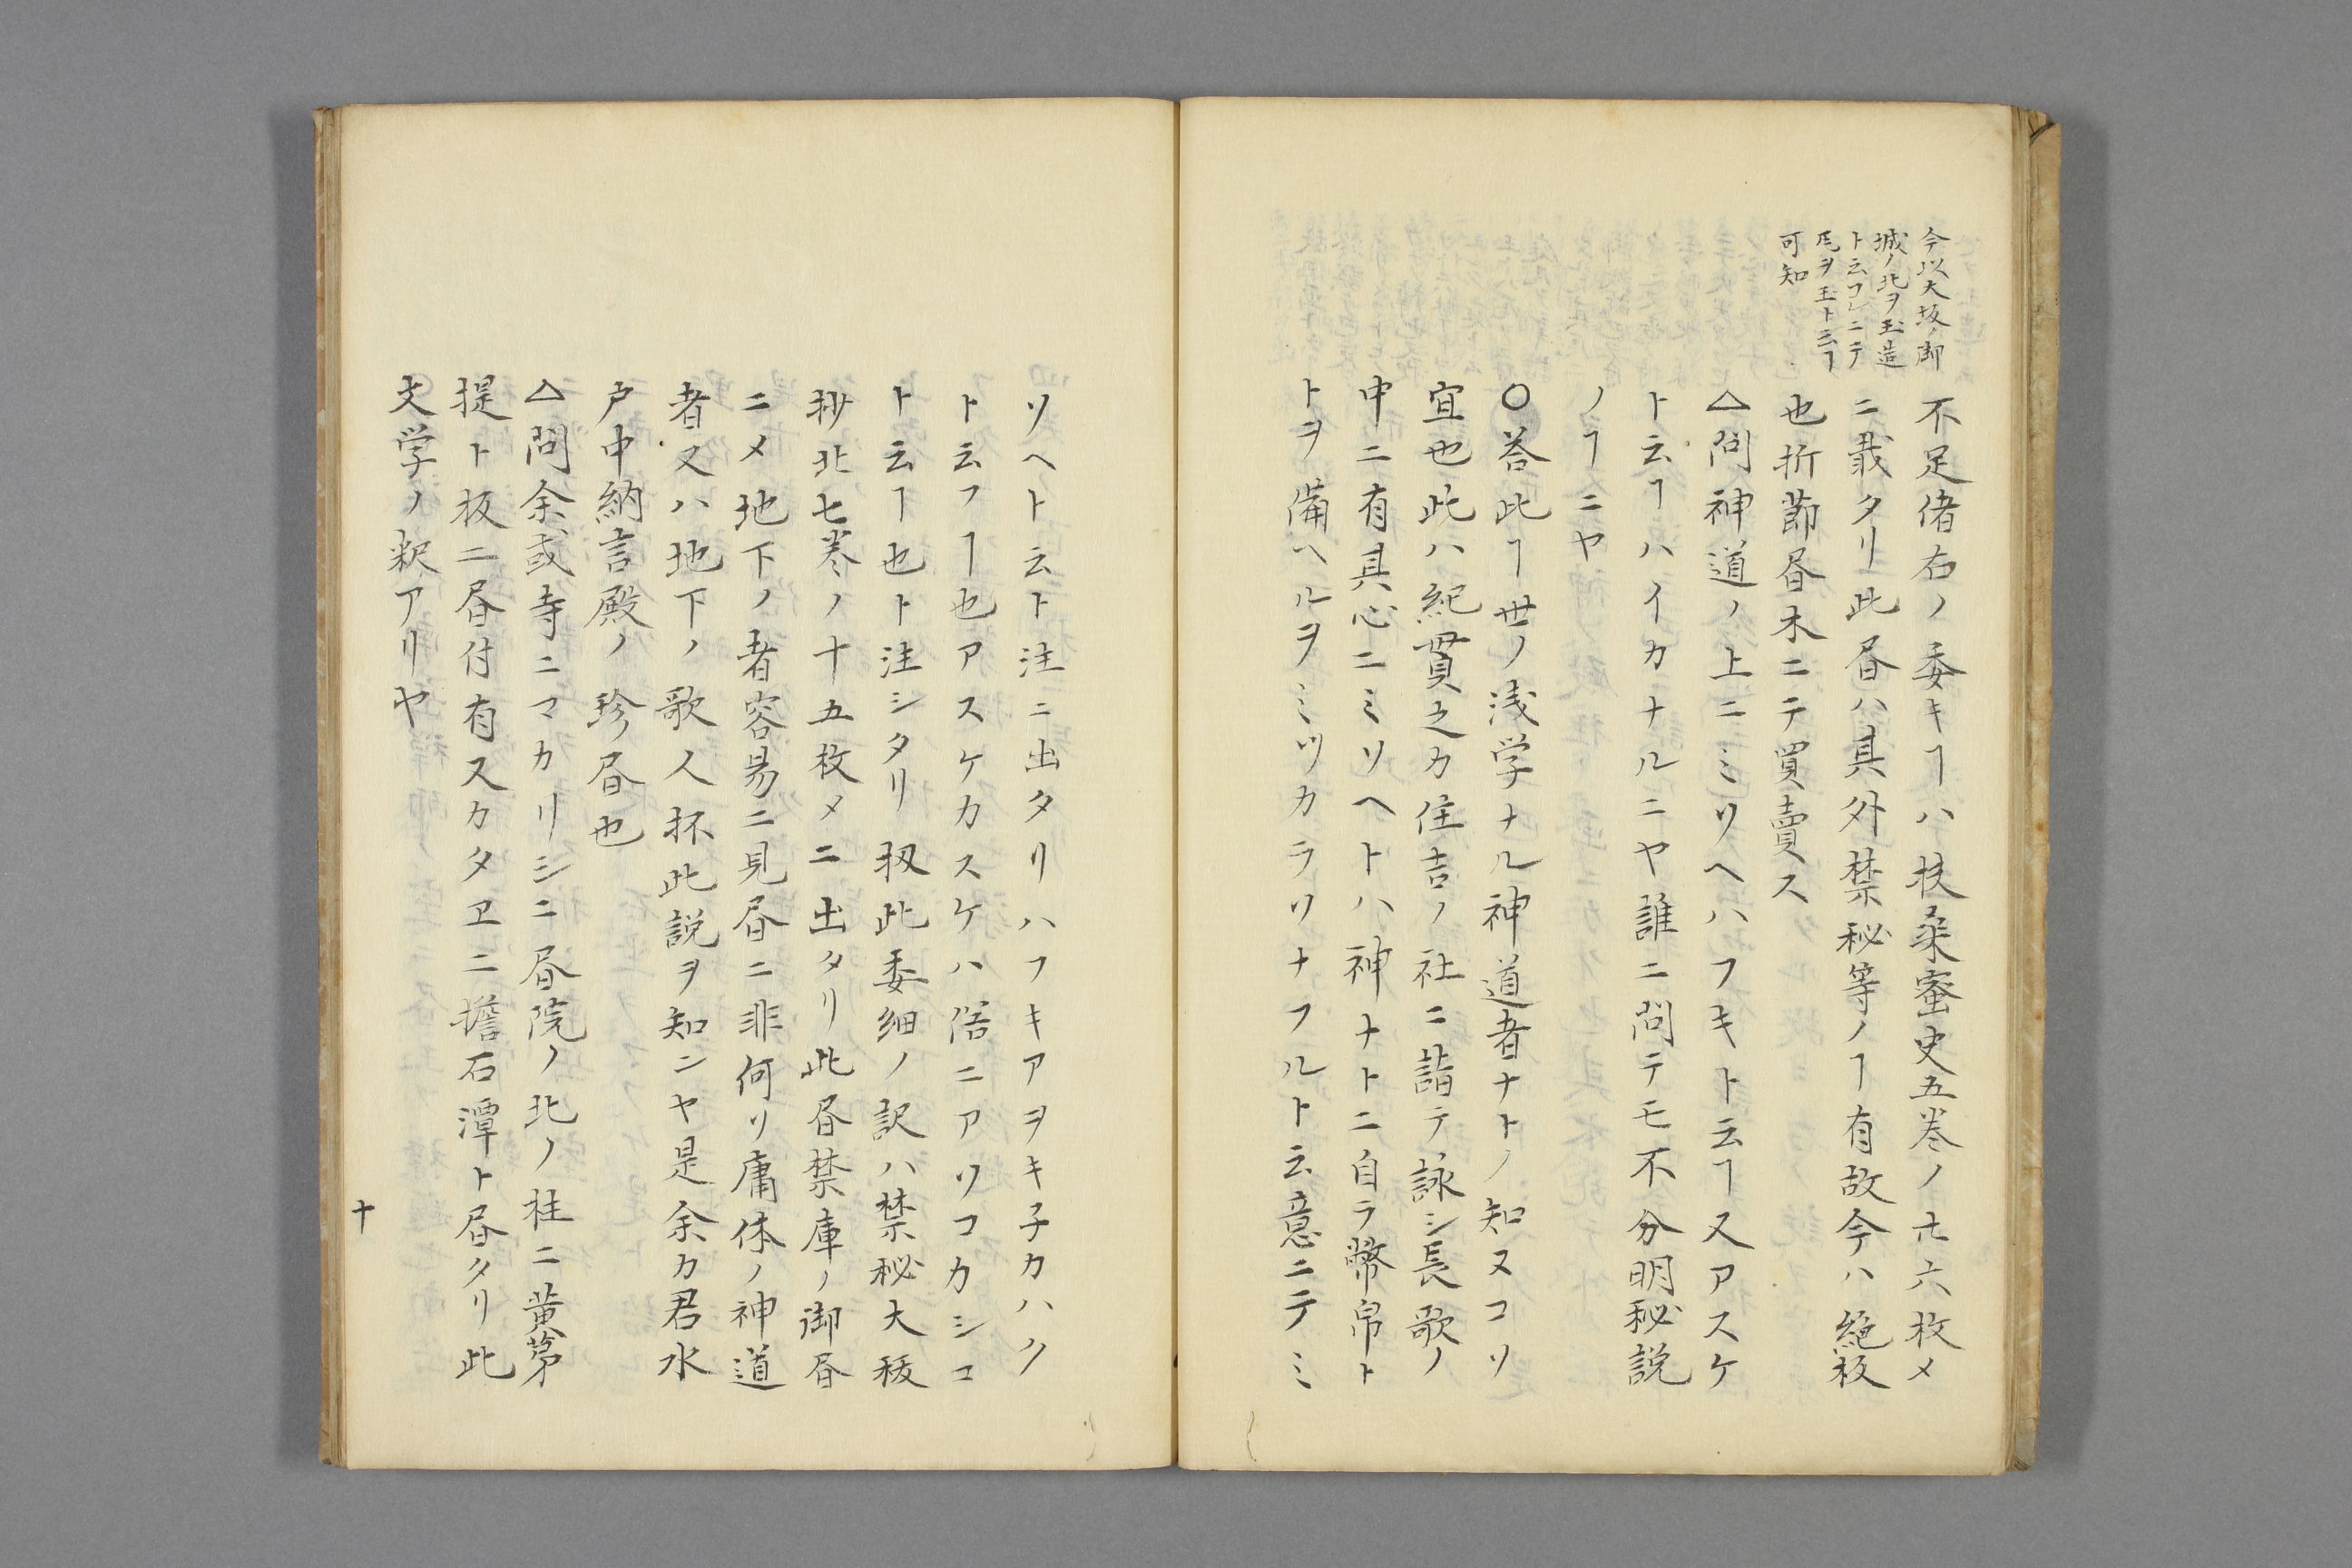 今以大坂ノ御
城ノ北ヲ玉造
ト云コレニテ
尾ヲ玉ト云ヿ
可知
不足偖右ノ委キヿハ扶桑蜜史五巻ノ卅六枚メ
ニ載タリ此昼ハ其外禁秘等ノヿ有故今ハ絶板
也折節昼木ニテ買賣ス
△問神道ノ上ニミソヘハフキト云ヿ又アスケ
ト云ヿハイカナルニヤ誰ニ問テモ不分明秘説
ノヿニヤ
○答此ヿ世ノ浅学ナル神道者ナトノ知ヌコソ
宜也此ハ紀貫之カ住吉ノ社ニ詣テ詠シ長歌ノ
中ニ有其心ニミソヘトハ神ナトニ自ラ幣帛ト
トヲ備ヘルヲミツカラソナフルト云意ニテミ
ソヘト云ト注ニ出タリハフキアヲキ子カハク
ト云フヿ也アスケカスケハ俗ニアソコカシコ
ト云ヿ也ト注シタリ扨此委細ノ訳ハ禁秘大秡
抄北七巻ノ十五枚メニ出タリ此昼禁庫ノ御昼
ニメ地下ノ者容易ニ見昼ニ非何リ庸体ノ神道
者又ハ地下ノ歌人抔此説ヲ知ンヤ是余カ君水
戸中納言殿ノ珍昼也
△問余或寺ニマカリシニ昼院ノ北ノ柱ニ黄茅
提ト板ニ昼付有スカタヱニ擔石潭ト昼タリ此
文学ノ釈アリヤ
十